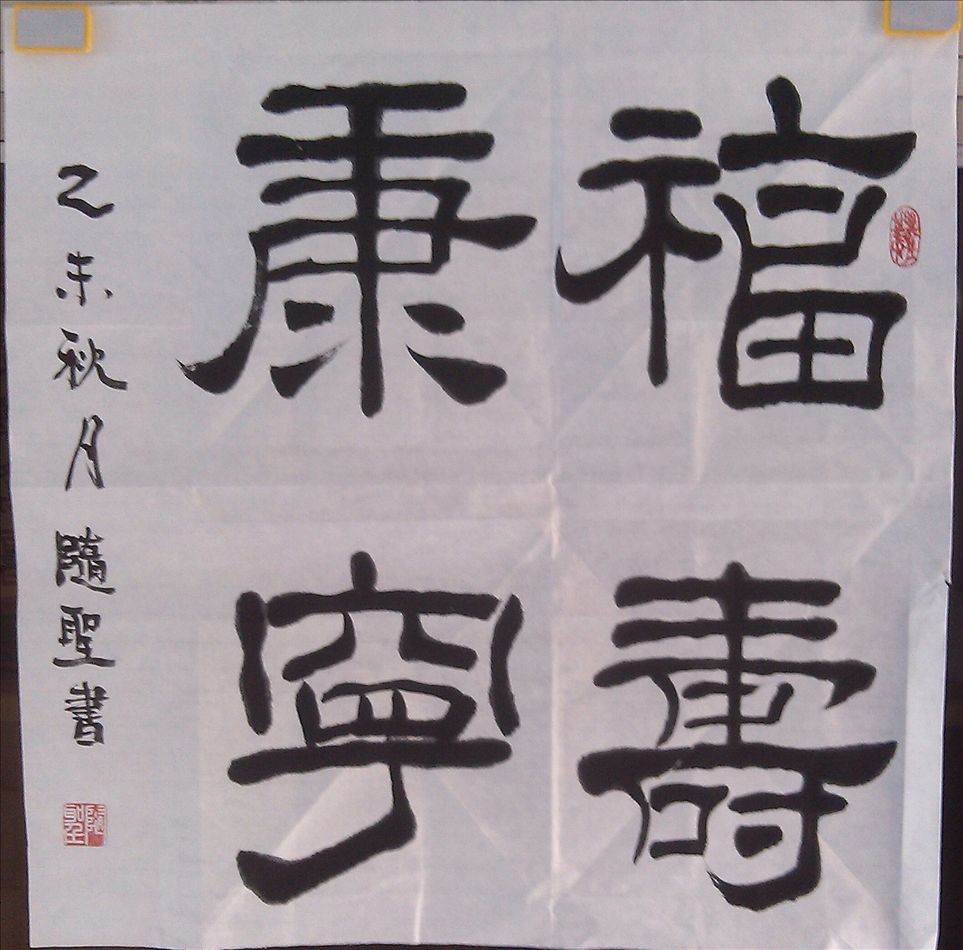 福壽
康寧
乙未秋月隨聖書
隨聖